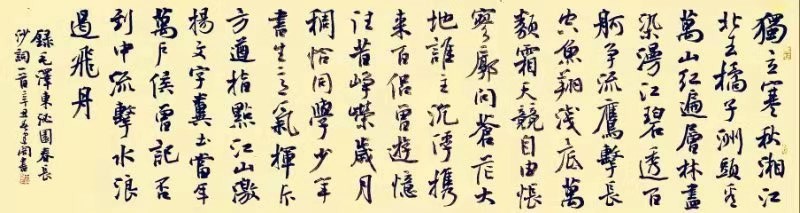 獨立寒秋湘江
北去橘子洲頭看
萬山紅遍層林盡
染漫江碧透百
舸争流鷹擊長
空魚翔淺底萬
類霜天競自由悵
寥廓問蒼茫大
地誰主沉浮携
来百侣曾遊憶
往昔崢嶸歲月
稠恰同學少年
書生意氣揮斥
方遒指點江山激
揚文字糞土當年
萬户侯曾記否
到中流擊水浪
遏飛舟
錄毛澤東沁園春長
沙詞一首辛丑書